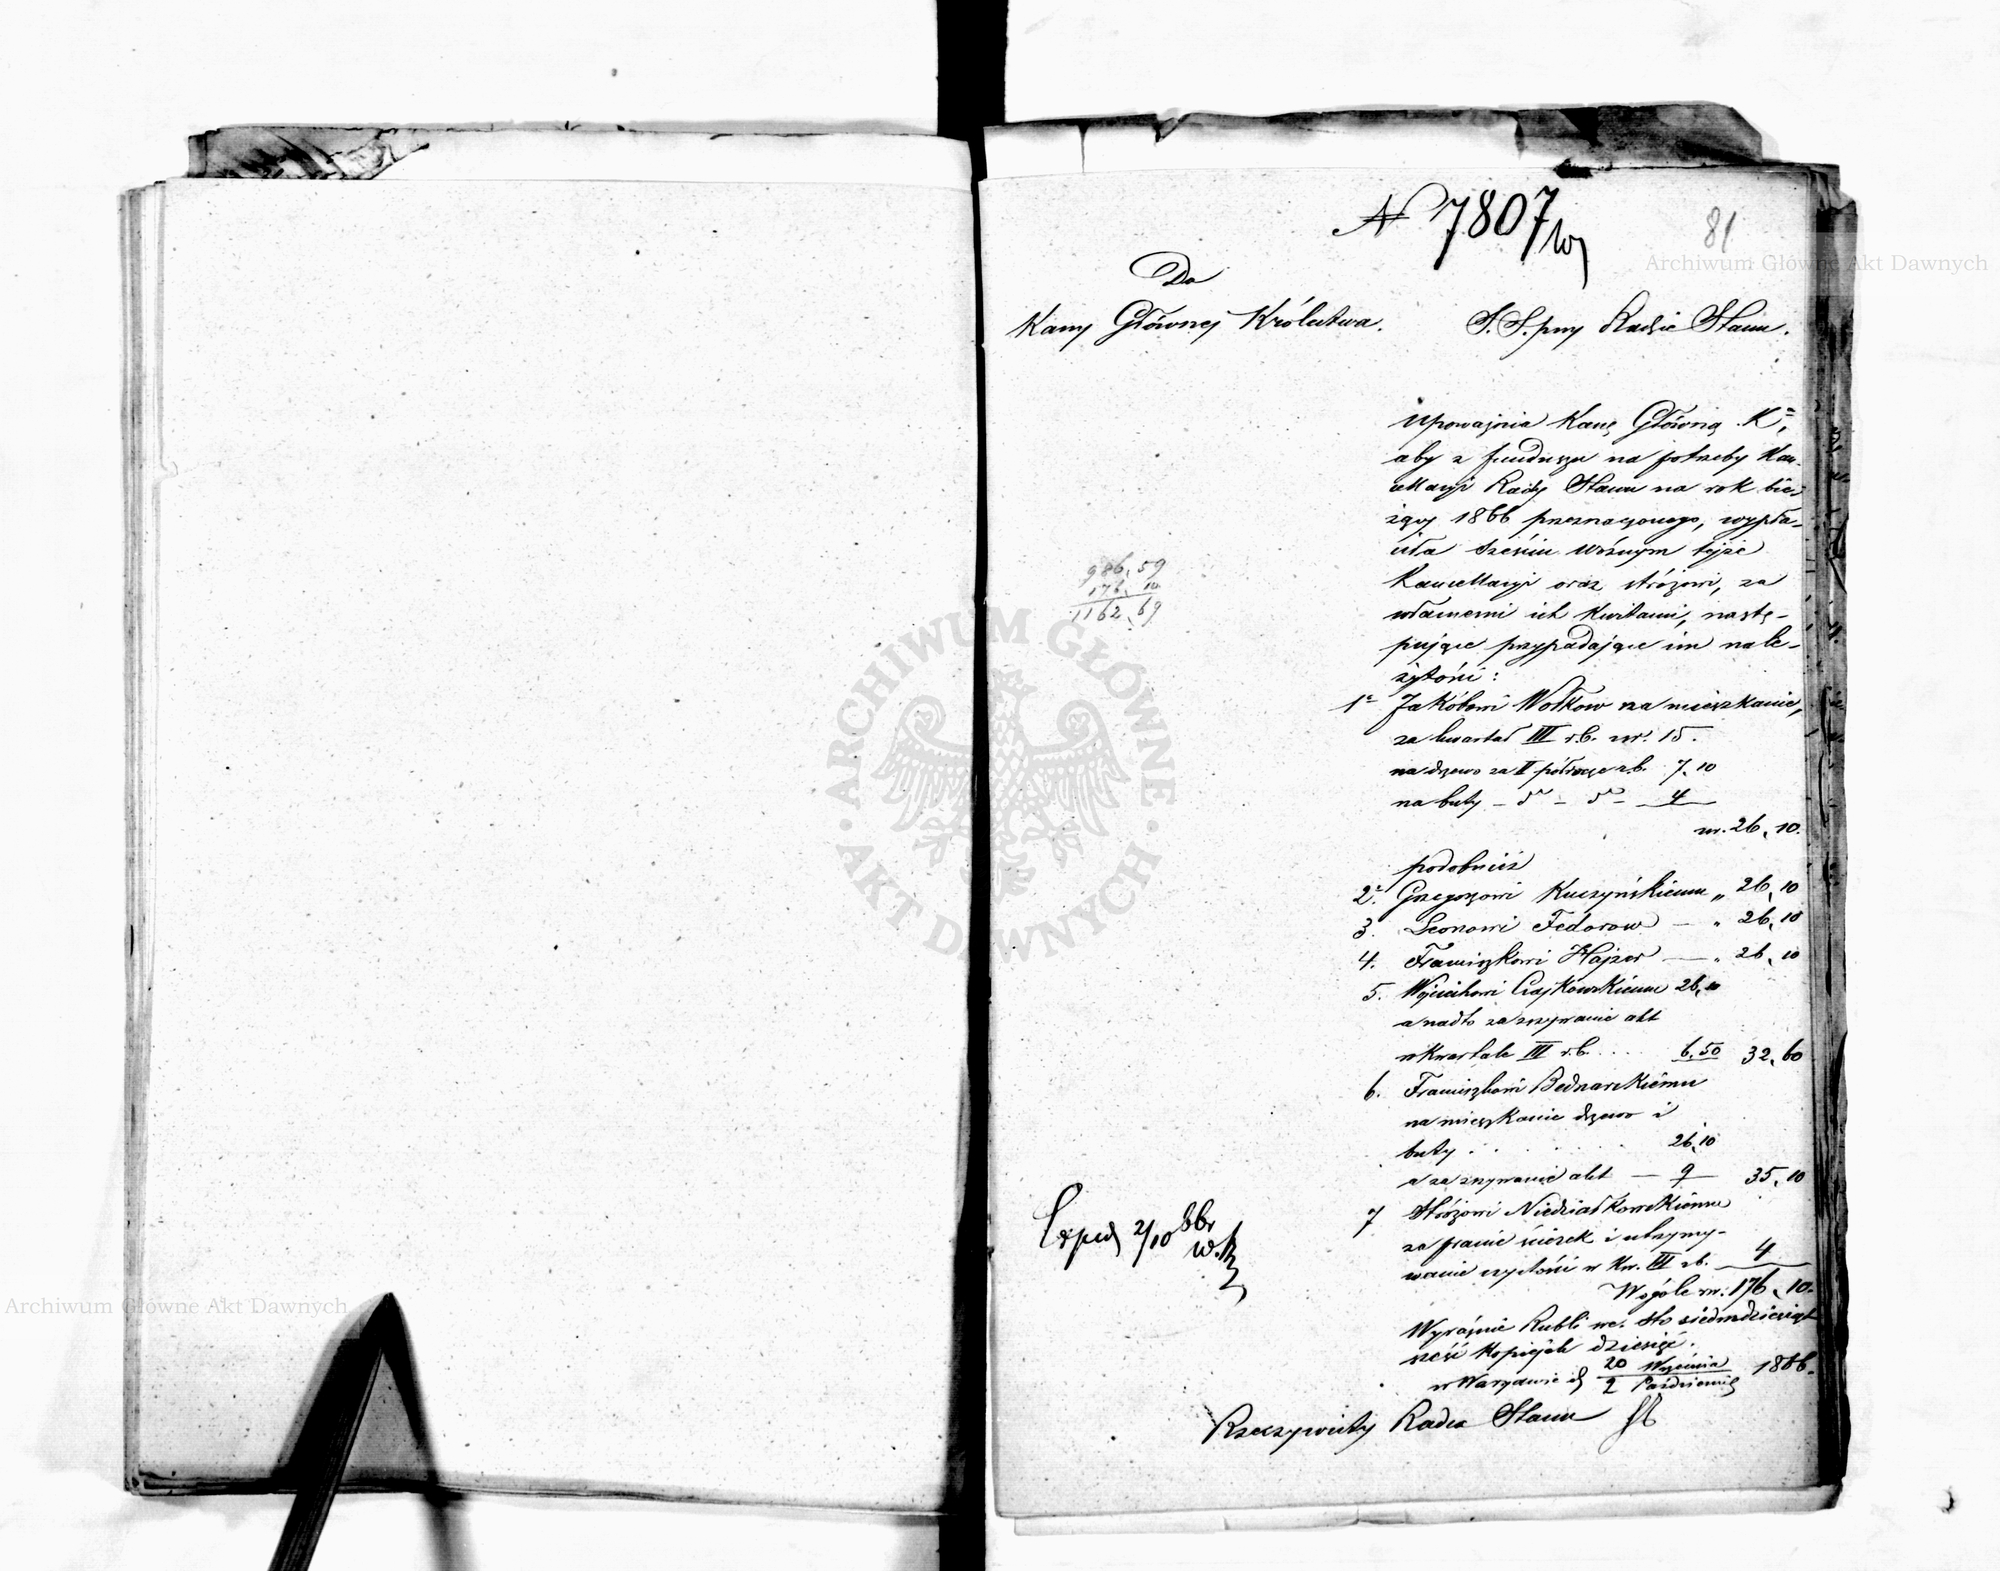 N 7807/
81
Do
Kassy Głównej Królestwa.
S. S. przy Radzie Stanu.
Upoważnia Kassę Główną K.,
aby z funduszu na potrzeby Kan-
cellaryi Rady Stanu na rok bie-
żący 1866 przeznaczonego, wypła-
ciła sześciu woźnym tejże
Kancellaryi oraz stróżowi, za
własnemi ich kwitami, nastę-
pujące przypadające im nale-
żytości:
986,59
176,10
1162,69
1° Jakóbowi Wołkow na mieszkanie,
za kwartał III r.b. rsr. 15.
na drzewo za II półrocze r.b. 7,10
na buty – do – do – 4
rsr. 26,10.
podobnież
2° Grzegorzowi Kuczyńskiemu „ 26,10
3. Leonowi Fedorow — „ 26,10
4. Franciszkowi Hajzer — „ 26,10
5. Wojciechowi Czajkowskiemu 26,10
a nadto za zszywanie akt
w kwartale III r.b. . . . . 6,50 32,60
6. Franciszkowi Bednarskiemu
na mieszkanie drzewo i
buty . . . . . 26,10
a za zszywanie akt — 9 — 35,10
7 Stróżowi Niedziałkowskiemu
za pranie ścierek i utrzymy-
wanie czystości w Kw. III r.b. 4
Wogóle rsr: 176,10.
Wyraźnie Rubli sr. sto siedmdziesiąt
sześć kopiejek dziesięć.
w Warszawie d. 20 Września
2 Października 1866.
Exped 2/10 66r
Rzeczywisty Radca Stanu
Archiwum Główne Akt Dawnych
Archiwum Główne Akt Dawnych
ARCHIWUM GŁÓWNE
AKT DAWNYCH